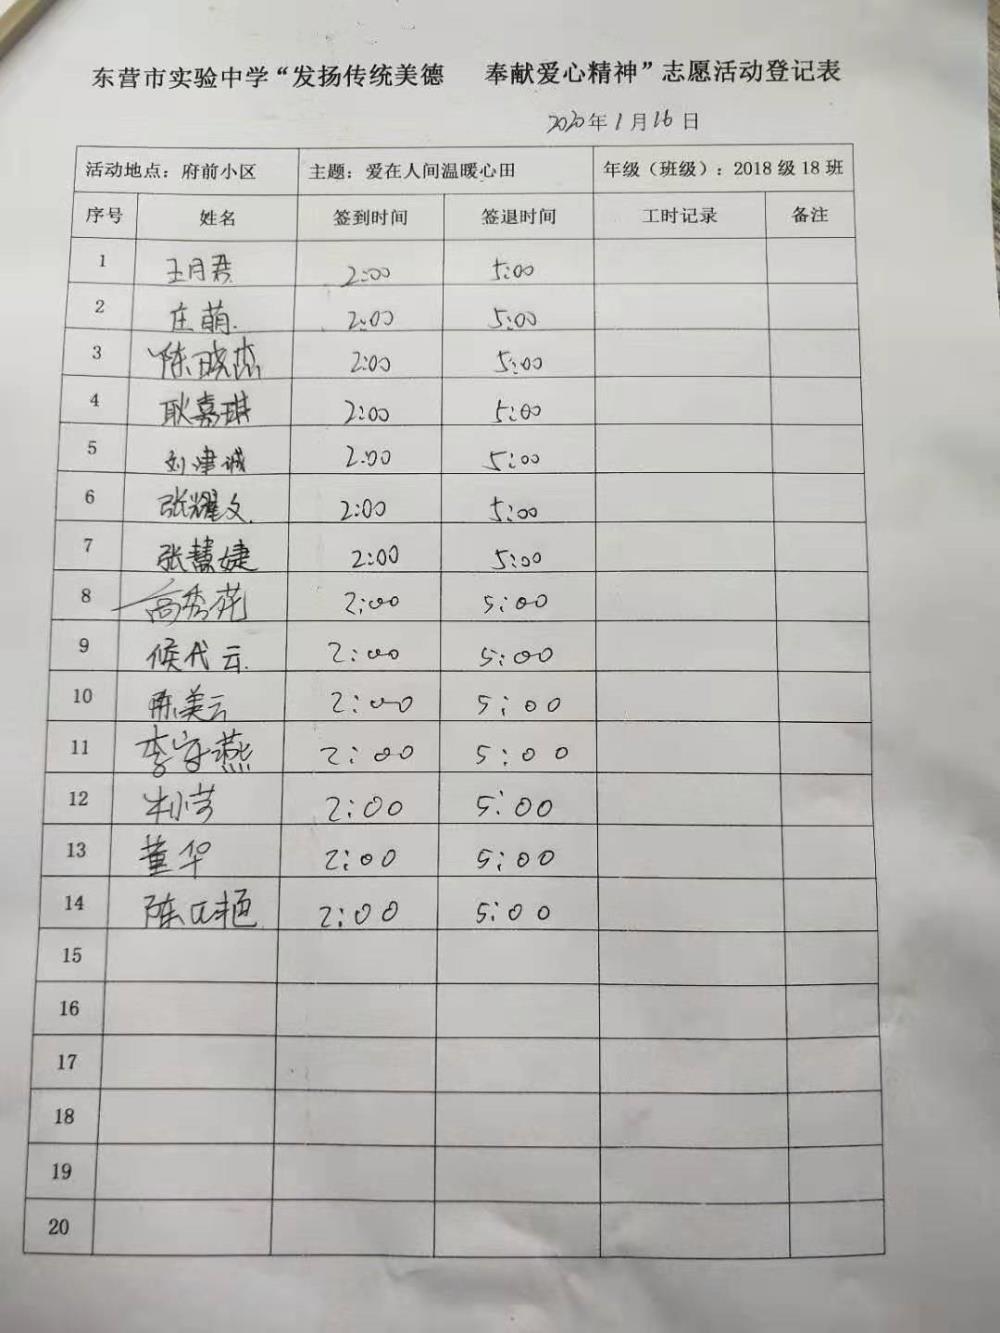 东营市实验中学“发扬传统美德 奉献爱心精神”志愿活动登记表
2020年1月16日
活动地点：府前小区 主题：爱在人间温暖心田 年级（班级）：2018级18班
序号 姓名 签到时间 签退时间 工时记录 备注
1 王月君 2:00 5:00
2 庄萌. 2:00 5:00
3 陈晓杰 2:00 5:00
4 耿嘉琪 2:00 5:00
5 刘津诚 2:00 5:00
6 张耀文. 2:00 5:00
7 张慧婕 2:00 5:00
8 高秀花 2:00 5:00
9 候代云. 2:00 5:00
10 陈美云 2:00 5:00
11 李守燕 2:00 5:00
12 牛小芳 2:00 5:00
13 董华 2:00 5:00
14 陈 艳 2:00 5:00
15
16
17
18
19
20